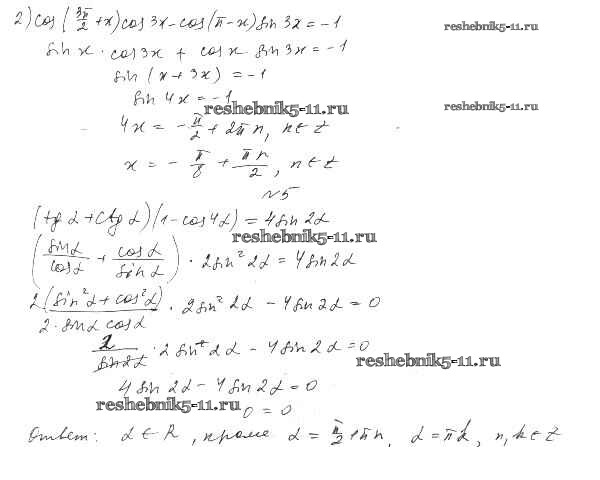 2) cos(3π/2 + x) cos 3x - cos(π - x) sin 3x = -1
reshebnik5-11.ru
sin x · cos 3x + cos x · sin 3x = -1
sin (x + 3x) = -1
sin 4x = -1
reshebnik5-11.ru
reshebnik5-11.ru
4x = -π/2 + 2πn, n ∈ Z
x = -π/8 + πn/2, n ∈ Z
№5
(tg α + ctg α)(1 - cos 4α) = 4 sin 2α
reshebnik5-11.ru
(sin α/cos α + cos α/sin α) · 2 sin² 2α = 4 sin 2α
2(sin² α + cos² α)/2 · sin α cos α · 2 sin² 2α - 4 sin 2α = 0
2/sin 2α · 2 sin² 2α - 4 sin 2α = 0
reshebnik5-11.ru
4 sin 2α - 4 sin 2α = 0
reshebnik5-11.ru
0 = 0
Ответ: α ∈ R, кроме α = π/2 + πn, α = πk, n, k ∈ Z